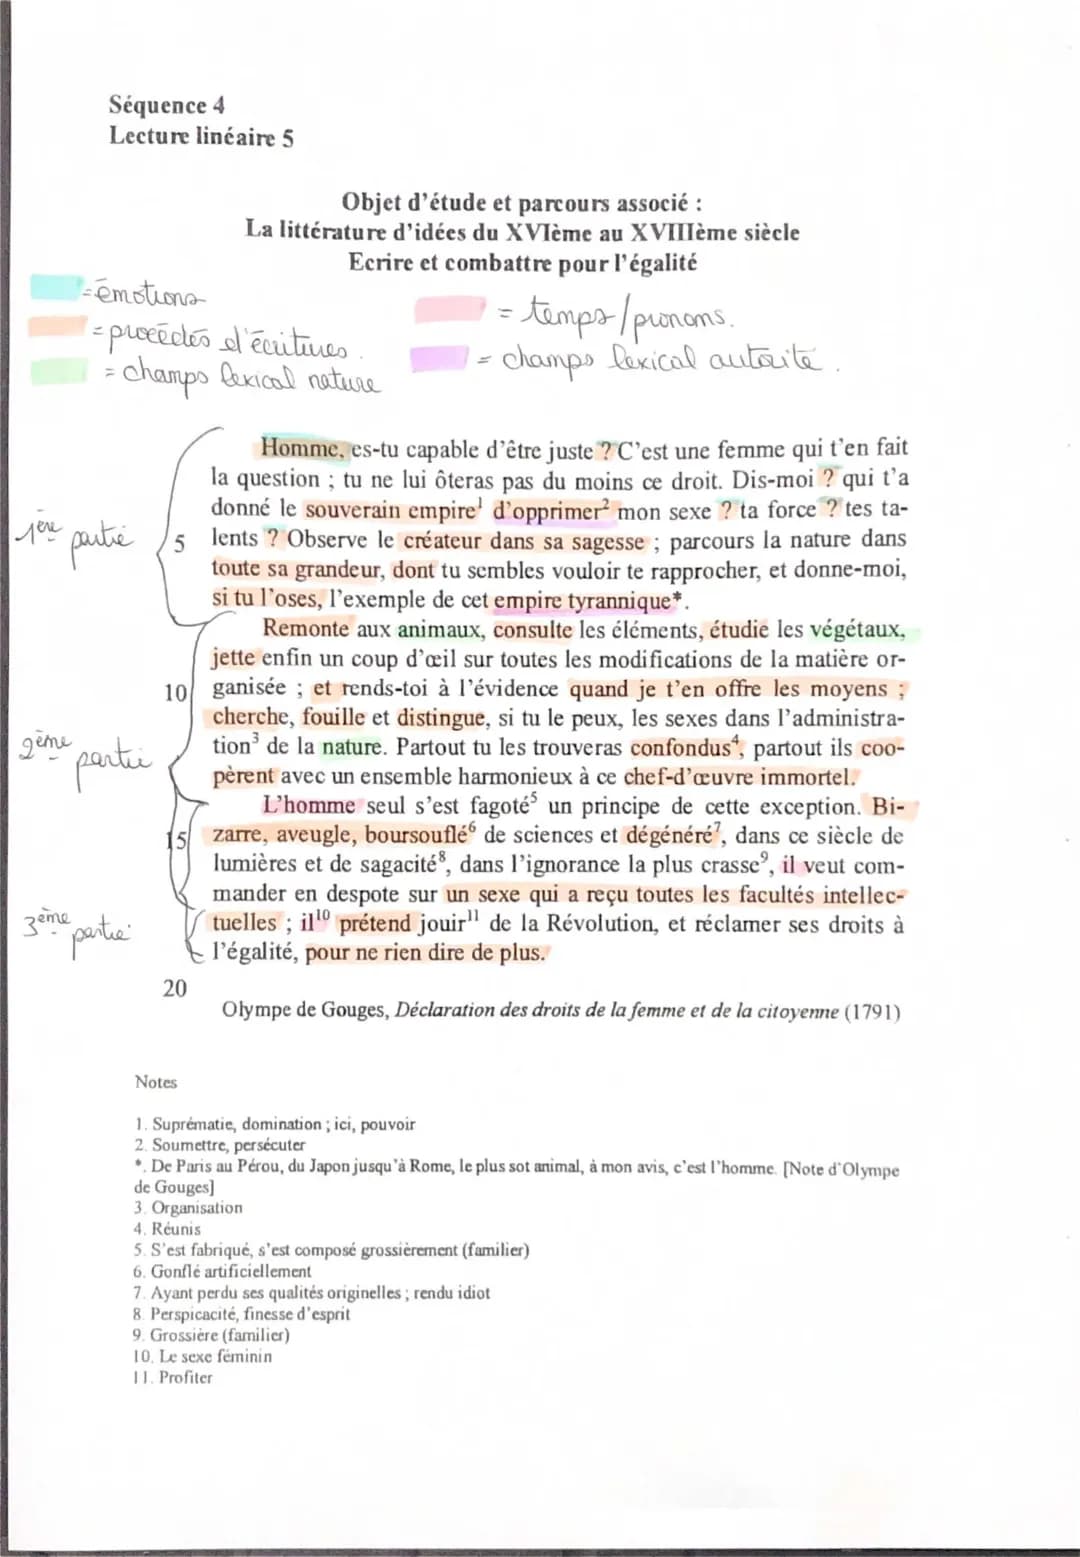 Séquence 4
Lecture linéaire 5
Objet d'étude et parcours associé :
La littérature d'idées du XVIème au XVIIIème siècle
Ecrire et combattre pour l'égalité
=émotions
= procédés d'écritures.
= champs lexical nature
= temps/pronoms.
= champs lexical autorité.
1ère partie
2ème partie
3ème partie
Homme, es-tu capable d'être juste ? C'est une femme qui t'en fait
la question ; tu ne lui ôteras pas du moins ce droit. Dis-moi ? qui t'a
donné le souverain empire¹ d'opprimer² mon sexe ? ta force ? tes ta-
5 lents ? Observe le créateur dans sa sagesse ; parcours la nature dans
toute sa grandeur, dont tu sembles vouloir te rapprocher, et donne-moi,
si tu l'oses, l'exemple de cet empire tyrannique*.
Remonte aux animaux, consulte les éléments, étudie les végétaux,
jette enfin un coup d'œil sur toutes les modifications de la matière or-
10 ganisée ; et rends-toi à l'évidence quand je t'en offre les moyens ;
cherche, fouille et distingue, si tu le peux, les sexes dans l'administra-
tion³ de la nature. Partout tu les trouveras confondus⁴, partout ils coo-
pèrent avec un ensemble harmonieux à ce chef-d'œuvre immortel.
L'homme seul s'est fagoté⁵ un principe de cette exception. Bi-
15 zarre, aveugle, boursouflé⁶ de sciences et dégénéré⁷, dans ce siècle de
lumières et de sagacité⁸, dans l'ignorance la plus crasse⁹, il veut com-
mander en despote sur un sexe qui a reçu toutes les facultés intellec-
tuelles ; il¹⁰ prétend jouir¹¹ de la Révolution, et réclamer ses droits à
l'égalité, pour ne rien dire de plus.
20
Olympe de Gouges, Déclaration des droits de la femme et de la citoyenne (1791)
Notes
1. Suprématie, domination ; ici, pouvoir
2. Soumettre, persécuter
*. De Paris au Pérou, du Japon jusqu'à Rome, le plus sot animal, à mon avis, c'est l'homme. [Note d'Olympe
de Gouges]
3. Organisation
4. Réunis
5. S'est fabriqué, s'est composé grossièrement (familier)
6. Gonflé artificiellement
7. Ayant perdu ses qualités originelles ; rendu idiot
8. Perspicacité, finesse d'esprit
9. Grossière (familier)
10. Le sexe féminin
11. Profiter